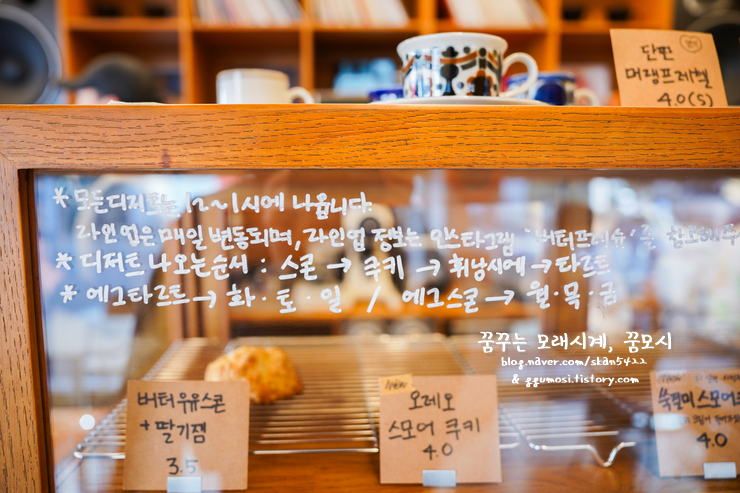 단짠
머랭프레첼
4.0(S)
* 모든디저트는 12~1시에 나옵니다.
라인업은 매일 변동되며, 라인업 정보는 인스타그램 '버터프레슈'를
* 디저트 나오는순서 : 스콘 → 쿠키 → 휘낭시에 → 타르트
* 에그타르트 → 화·토·일 / 에그스콘 → 월·목·금
꿈꾸는 모래시계, 꿈모시
blog.naver.com/skan5422
& ggumosi.tistory.com
버터우유스콘
+ 딸기잼
3.5
오레오
스모어 쿠키
4.0
스모어
4.0